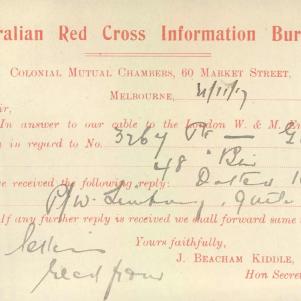 ralian Red Cross Information Bur
Colonial Mutual Chambers, 60 Market Street,
Melbourne, 21/11/17
ir,
In answer to our cable to the London W. & M. En
y in regard to No. 3267 Pte —
48 Bn
we received the following reply: Dated
P/W.
If any further reply is received we shall forward same
Yours faithfully,
J. Beacham Kiddle,
Hon Secre